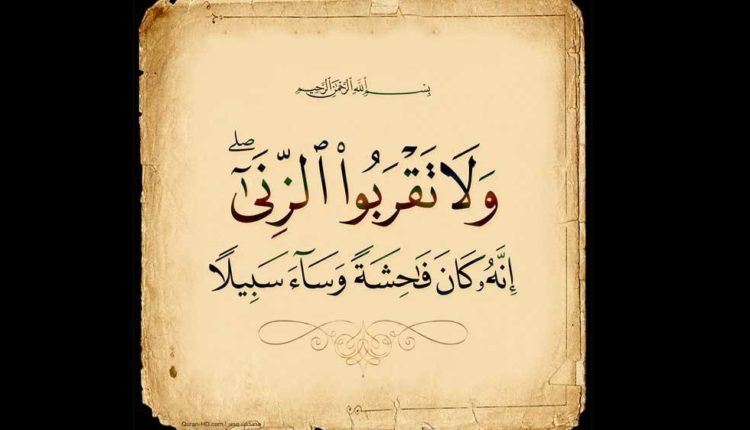 بِسْمِ ٱللَّهِ ٱلرَّحْمَٰنِ ٱلرَّحِيمِ
وَلَا تَقْرَبُوا۟ ٱلزِّنَىٰٓ ۖ
إِنَّهُۥ كَانَ فَٰحِشَةً وَسَآءَ سَبِيلًا
Quran-HD.com |